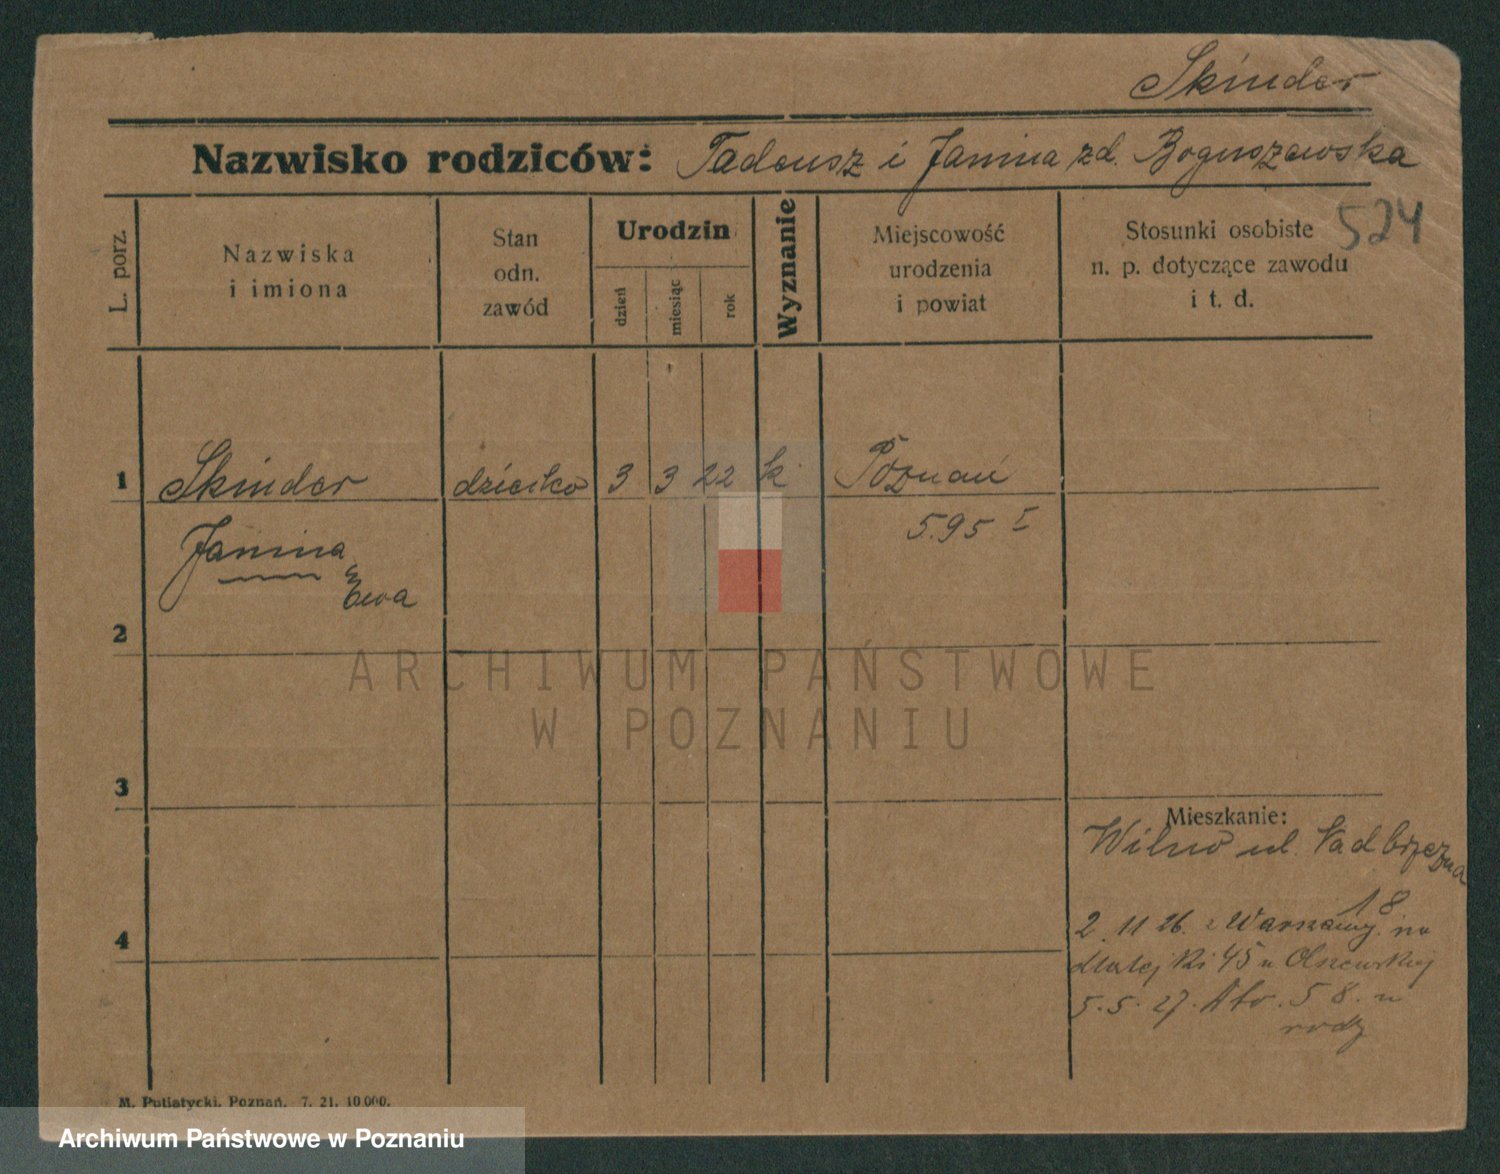 Skinder
Nazwisko rodziców: Tadeusz i Janina zd. Boguszewska
524
L. porz.
Nazwiska
i imiona
Stan
odn.
zawód
Urodzin
dzień
miesiąc
rok
Wyznanie
Miejscowość
urodzenia
i powiat
Stosunki osobiste
n. p. dotyczące zawodu
i t. d.
1 Skinder dziecko 3 3 22 k. Poznań
5.95 I
Janina
Ewa
2
ARCHIWUM PAŃSTWOWE
W POZNANIU
3
Mieszkanie:
Wilno ul. Nadbrzeżna
18
4
2. 11 26. z Warszawy na
45 u Olszewskiej
5. 5. 27. 58. u
rodz
M. Putiatycki, Poznań. 7. 21. 10 000.
Archiwum Państwowe w Poznaniu